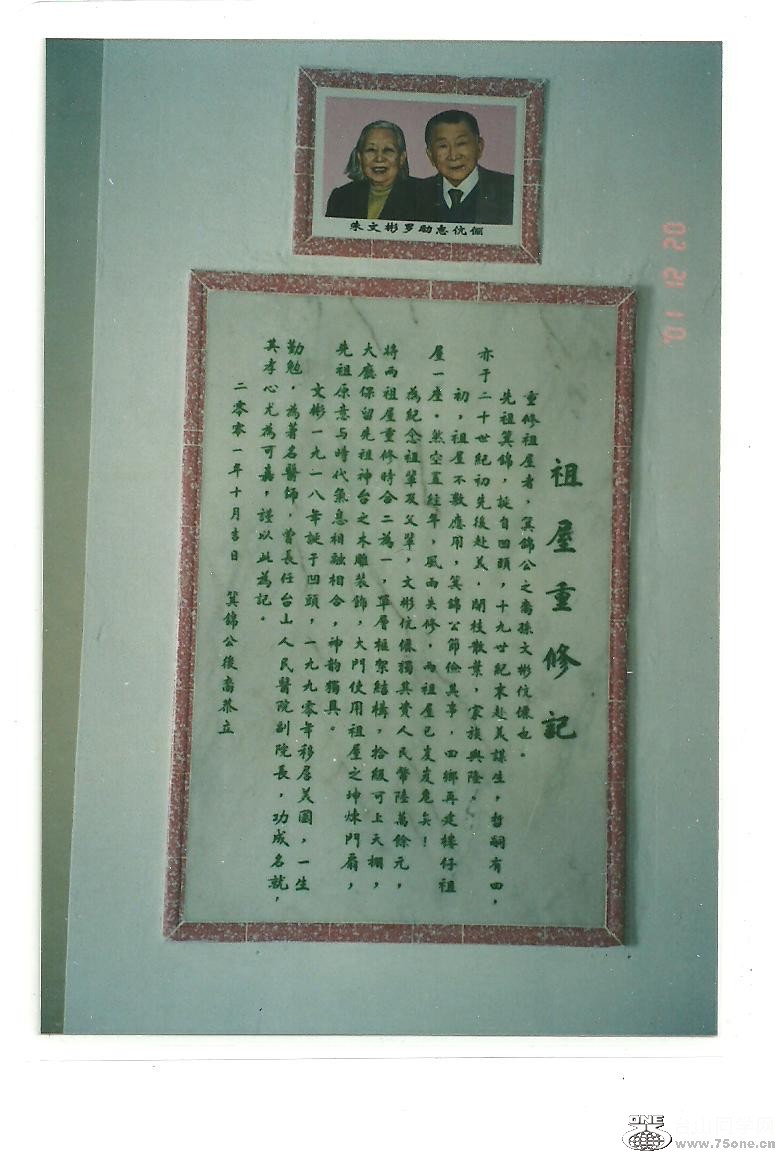 朱文彬罗励惠伉俪
祖屋重修记
重修祖屋者，箕錦公之裔孫文彬伉儷也。
先祖箕錦，誕自凹頭，十九世紀末赴美謀生，哲嗣有四，
亦于二十世紀初先後赴美，開枝散葉，家族興隆。
初，祖屋不敷應用，箕錦公節儉其事，回鄉再建樓仔祖
屋一座。然空置經年，風雨失修，兩祖屋已岌岌危矣！
為紀念祖輩及父輩，文彬伉儷獨其資人民幣陸萬餘元，
將兩祖屋重修時合二為一，單層框架結構，拾級可上天棚，
大廳保留先祖神台之木雕裝飾，大門使用祖屋之坤㷂門扇，
先祖原意与時代氣息相融相合，神韵獨具。
文彬一九一八年誕于凹頭，一九九零年移居美國，一生
勤勉，為著名醫師，曾長任台山人民醫院副院長，功成名就，
其孝心尤為可嘉，謹以此為記。
二零零一年十月吉日 箕錦公後裔恭立
01 12 20
ONE
www.75one.cn